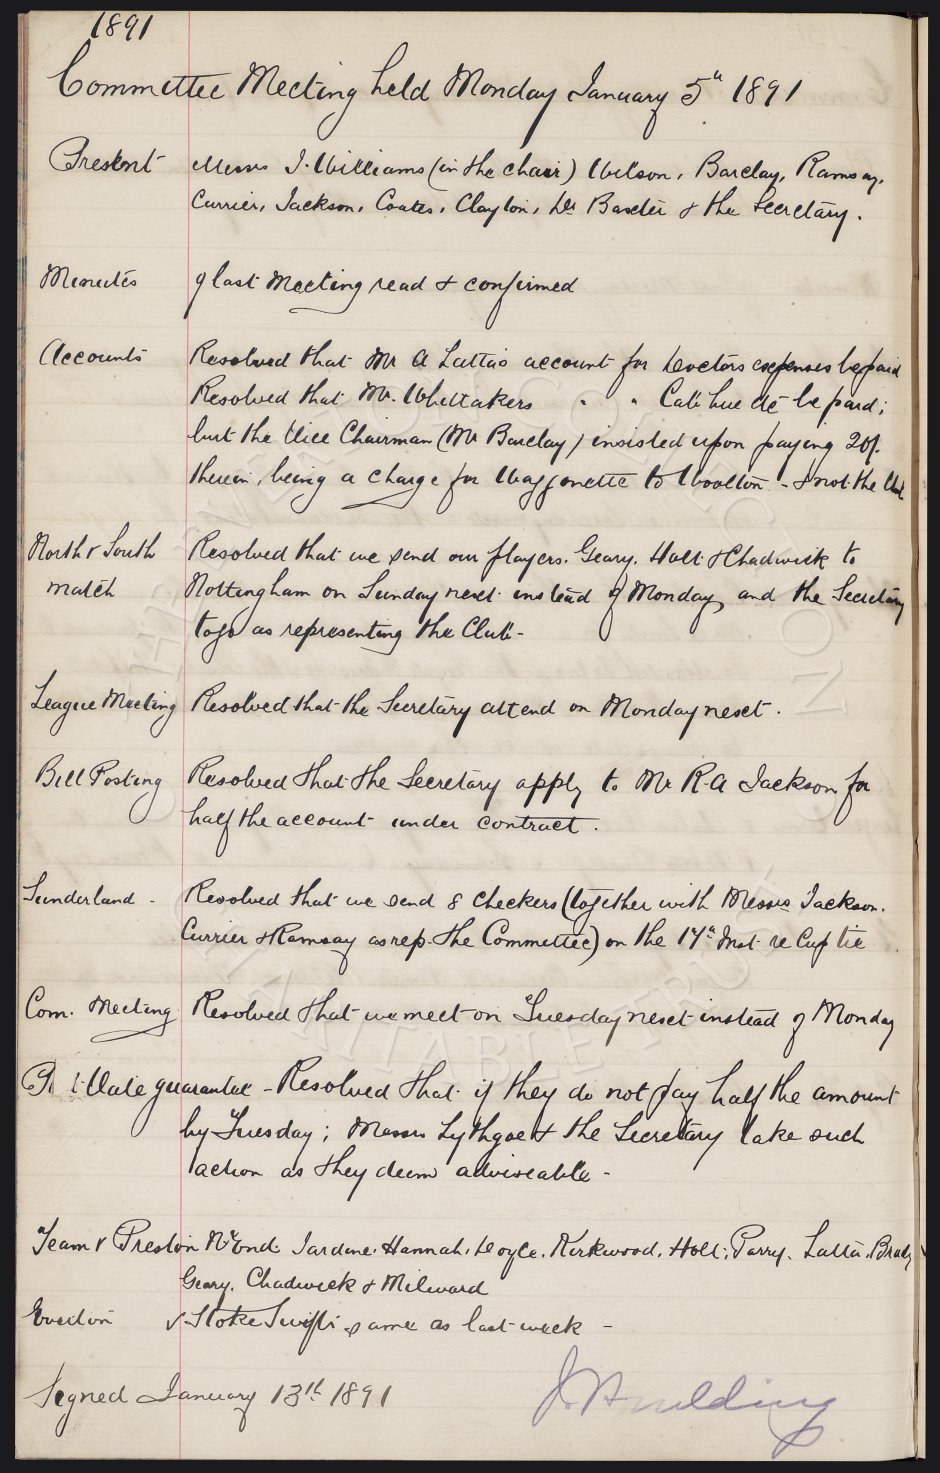 1891
Committee Meeting held Monday January 5th 1891
Present Messrs J. Williams (in the chair) Wilson, Barclay, Ramsay,
Currier, Jackson, Coates, Clayton, Dr Baxter & the Secretary.
Minutes of last meeting read & confirmed
Accounts Resolved that Mr A Latta's account for Doctors expenses be paid
Resolved that Mr. Whittakers " " Cab hire etc be paid;
but the Vice Chairman (Mr Barclay) insisted upon paying 20/-
therein, being a charge for Waggonette to Woolton - & not the Club
North v South Resolved that we send our players. Geary, Holt & Chadwick to
match Nottingham on Sunday next instead of Monday, and the Secretary
to go as representing the Club -
League Meeting Resolved that the Secretary attend on Monday next.
Bill Posting Resolved that the Secretary apply to Mr R.A Jackson for
half the account under contract.
Sunderland - Resolved that we send 8 checkers (together with Messrs Jackson.
Currier & Ramsay as rep. the Committee) on the 17th Inst re Cup tie
Com. Meeting Resolved that we meet on Tuesday next instead of Monday
Vale guarantee - Resolved that if they do not pay half the amount
by Tuesday; Messrs Lythgoe & the Secretary take such
action as they deem adviseable -
Team v Preston N. End. Jardine. Hannah, Doyle, Kirkwood, Holt, Parry. Latta. Brady
Geary. Chadwick & Milward
Everton v Stoke Swifts same as last week -
Signed January 13th 1891
CHARITABLE TRUST